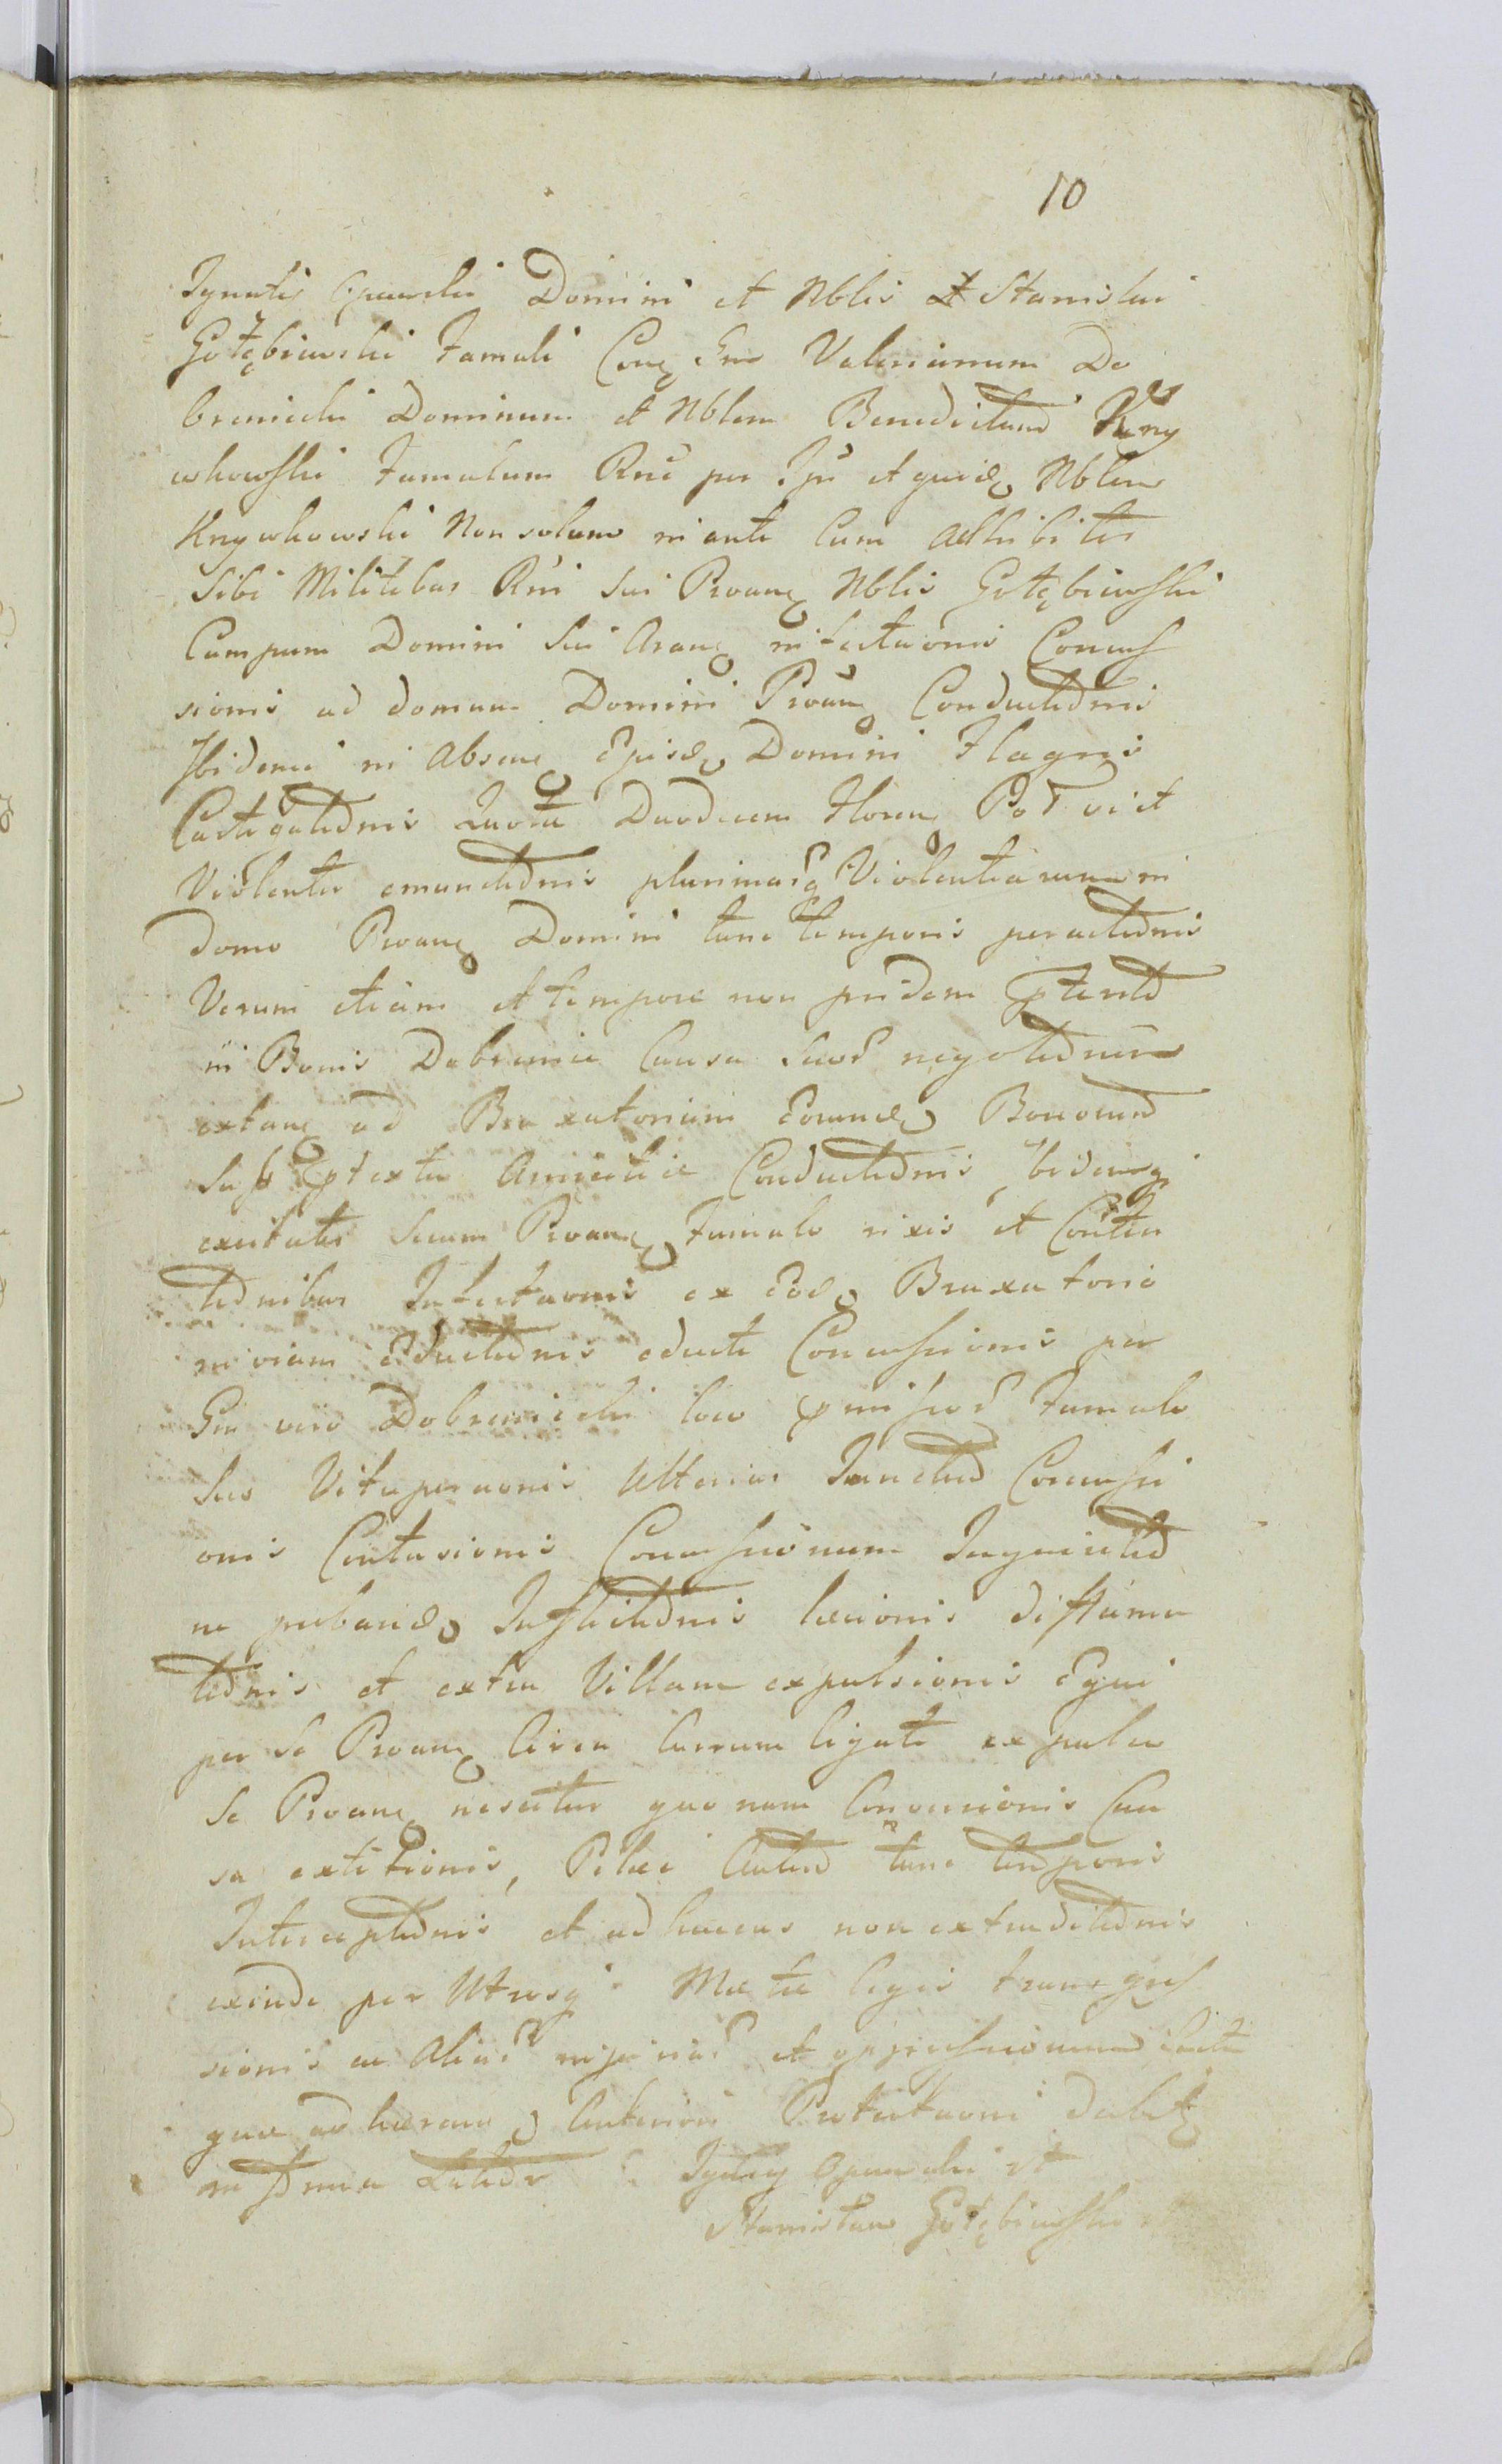 10
Ignatii Opacki Domini et Nblis Stanislai
Gołębiewski Famuli Con Gm Valerianum Do
brenicki Dominum et Nblem Benedictum Kny
wkowski Famulum Rm per Ipm et quid Nblem
Knywkowski Non solum in ante Cum adhibitis
Sibi Militibus Rni sui Proan Nblis Gołębiewski
Campum Domini Sui Aran infestaonis Concus
sionis ad domum Domini Proan Conductionis
Ibidemq in Absen Ejusd Domini Flagris
Castigationis Duodecem Floren Pol vi et
Violenter emunctionis plurimar Violentiarum in
domo Proan Domini tunc temporis peractionis
Verum etiam et tempore non pridem
in Bonis Dobrenice Causa Suor negotiorum
extan ad Braxatorium eorund Bonorum
Sub ptextu Amicitiae Conductionis ibidemq
excitatis Secum Proan Famulo rixis et Conten
tionibus Infestaonis ex eod Braxatorio
in viam eductionis educti Concussionis per
Gm vero Dobrenicki loco pmissor Famulo
Suo Vituperaonis Ulterius Concussi
onis Contusionis Concussionum
ne prebend laesionis diffama
tionis et extra Villam expulsionis Equi
per se Proan Circa Currum ligati expulso
Se Proan nescitur quo nam Conversionis Cau
sa extitionis, Pilei Autem tunc temporis
Interceptionis et adhucus non extraditionis
exinde per Utrosq legis transgres
sionis ac aliar injuriar et oppressionum
quae ad Anteriori Protestaoni
in forma Ignacy Opacki et
Stanisław Gołębiewski